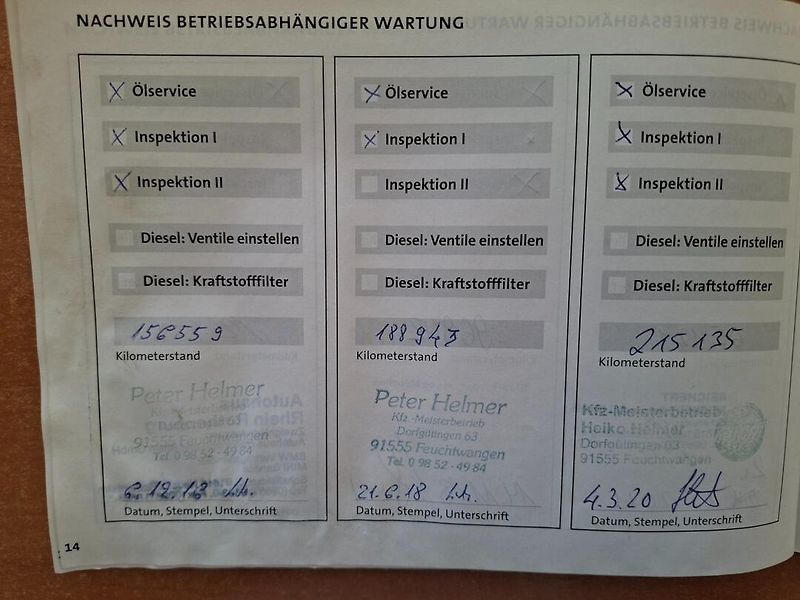 NACHWEIS BETRIEBSABHÄNGIGER WARTUNG
Ölservice
Inspektion I
Inspektion II
Diesel: Ventile einstellen
Diesel: Kraftstofffilter
156559
Kilometerstand
Peter Helmer
91555 Feuchtwangen
Tel. 0 98 52 - 49 84
6.12.12
Datum, Stempel, Unterschrift
Ölservice
Inspektion I
Inspektion II
Diesel: Ventile einstellen
Diesel: Kraftstofffilter
188943
Kilometerstand
Peter Helmer
Kfz.-Meisterbetrieb
Dorfgütingen 63
91555 Feuchtwangen
Tel. 0 98 52 - 49 84
21.6.18
Datum, Stempel, Unterschrift
Ölservice
Inspektion I
Inspektion II
Diesel: Ventile einstellen
Diesel: Kraftstofffilter
215135
Kilometerstand
Kfz-Meisterbetrieb
Heiko Helmer
Dorfgütingen 63
91555 Feuchtwangen
4.3.20
Datum, Stempel, Unterschrift
14